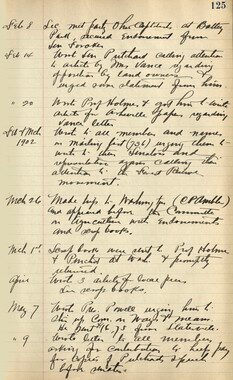 125
Feb 8 Leg. met party Ohio Capitalists at Battery
Park, secured Endorsement from
Sen Foraker
Feb 14 Wrote Sen Pritchard calling attention
to article by Mr Vance regarding
opposition by land owners &
urged some statement from him.
" 20 Wrote Prof Holmes & got him to write
article for Asheville papers regarding
Vance letter
Feb & Mch Write to all members and names
1902 on mailing list (736) urging them to
write to their Senators and
representatives again calling their
attention to the Forest Reserve
movement.
Mch 26 Made trip to Washington (CP Ambler)
and appeared before the Committee
on Agriculture with Endorsements
and scrap books.
Mch 1st Scrap books were sent to Prof Holmes
& Pinchot at Wash. & promptly
returned
April Wrote 3 articles for local press
See scrap books.
May 7 Wrote Pres Powell urging him to
stir up Com on Ways & means
" 9 Wrote letter to all members
asking for contribution to help pay
for copies of Pritchards speech
before senate.